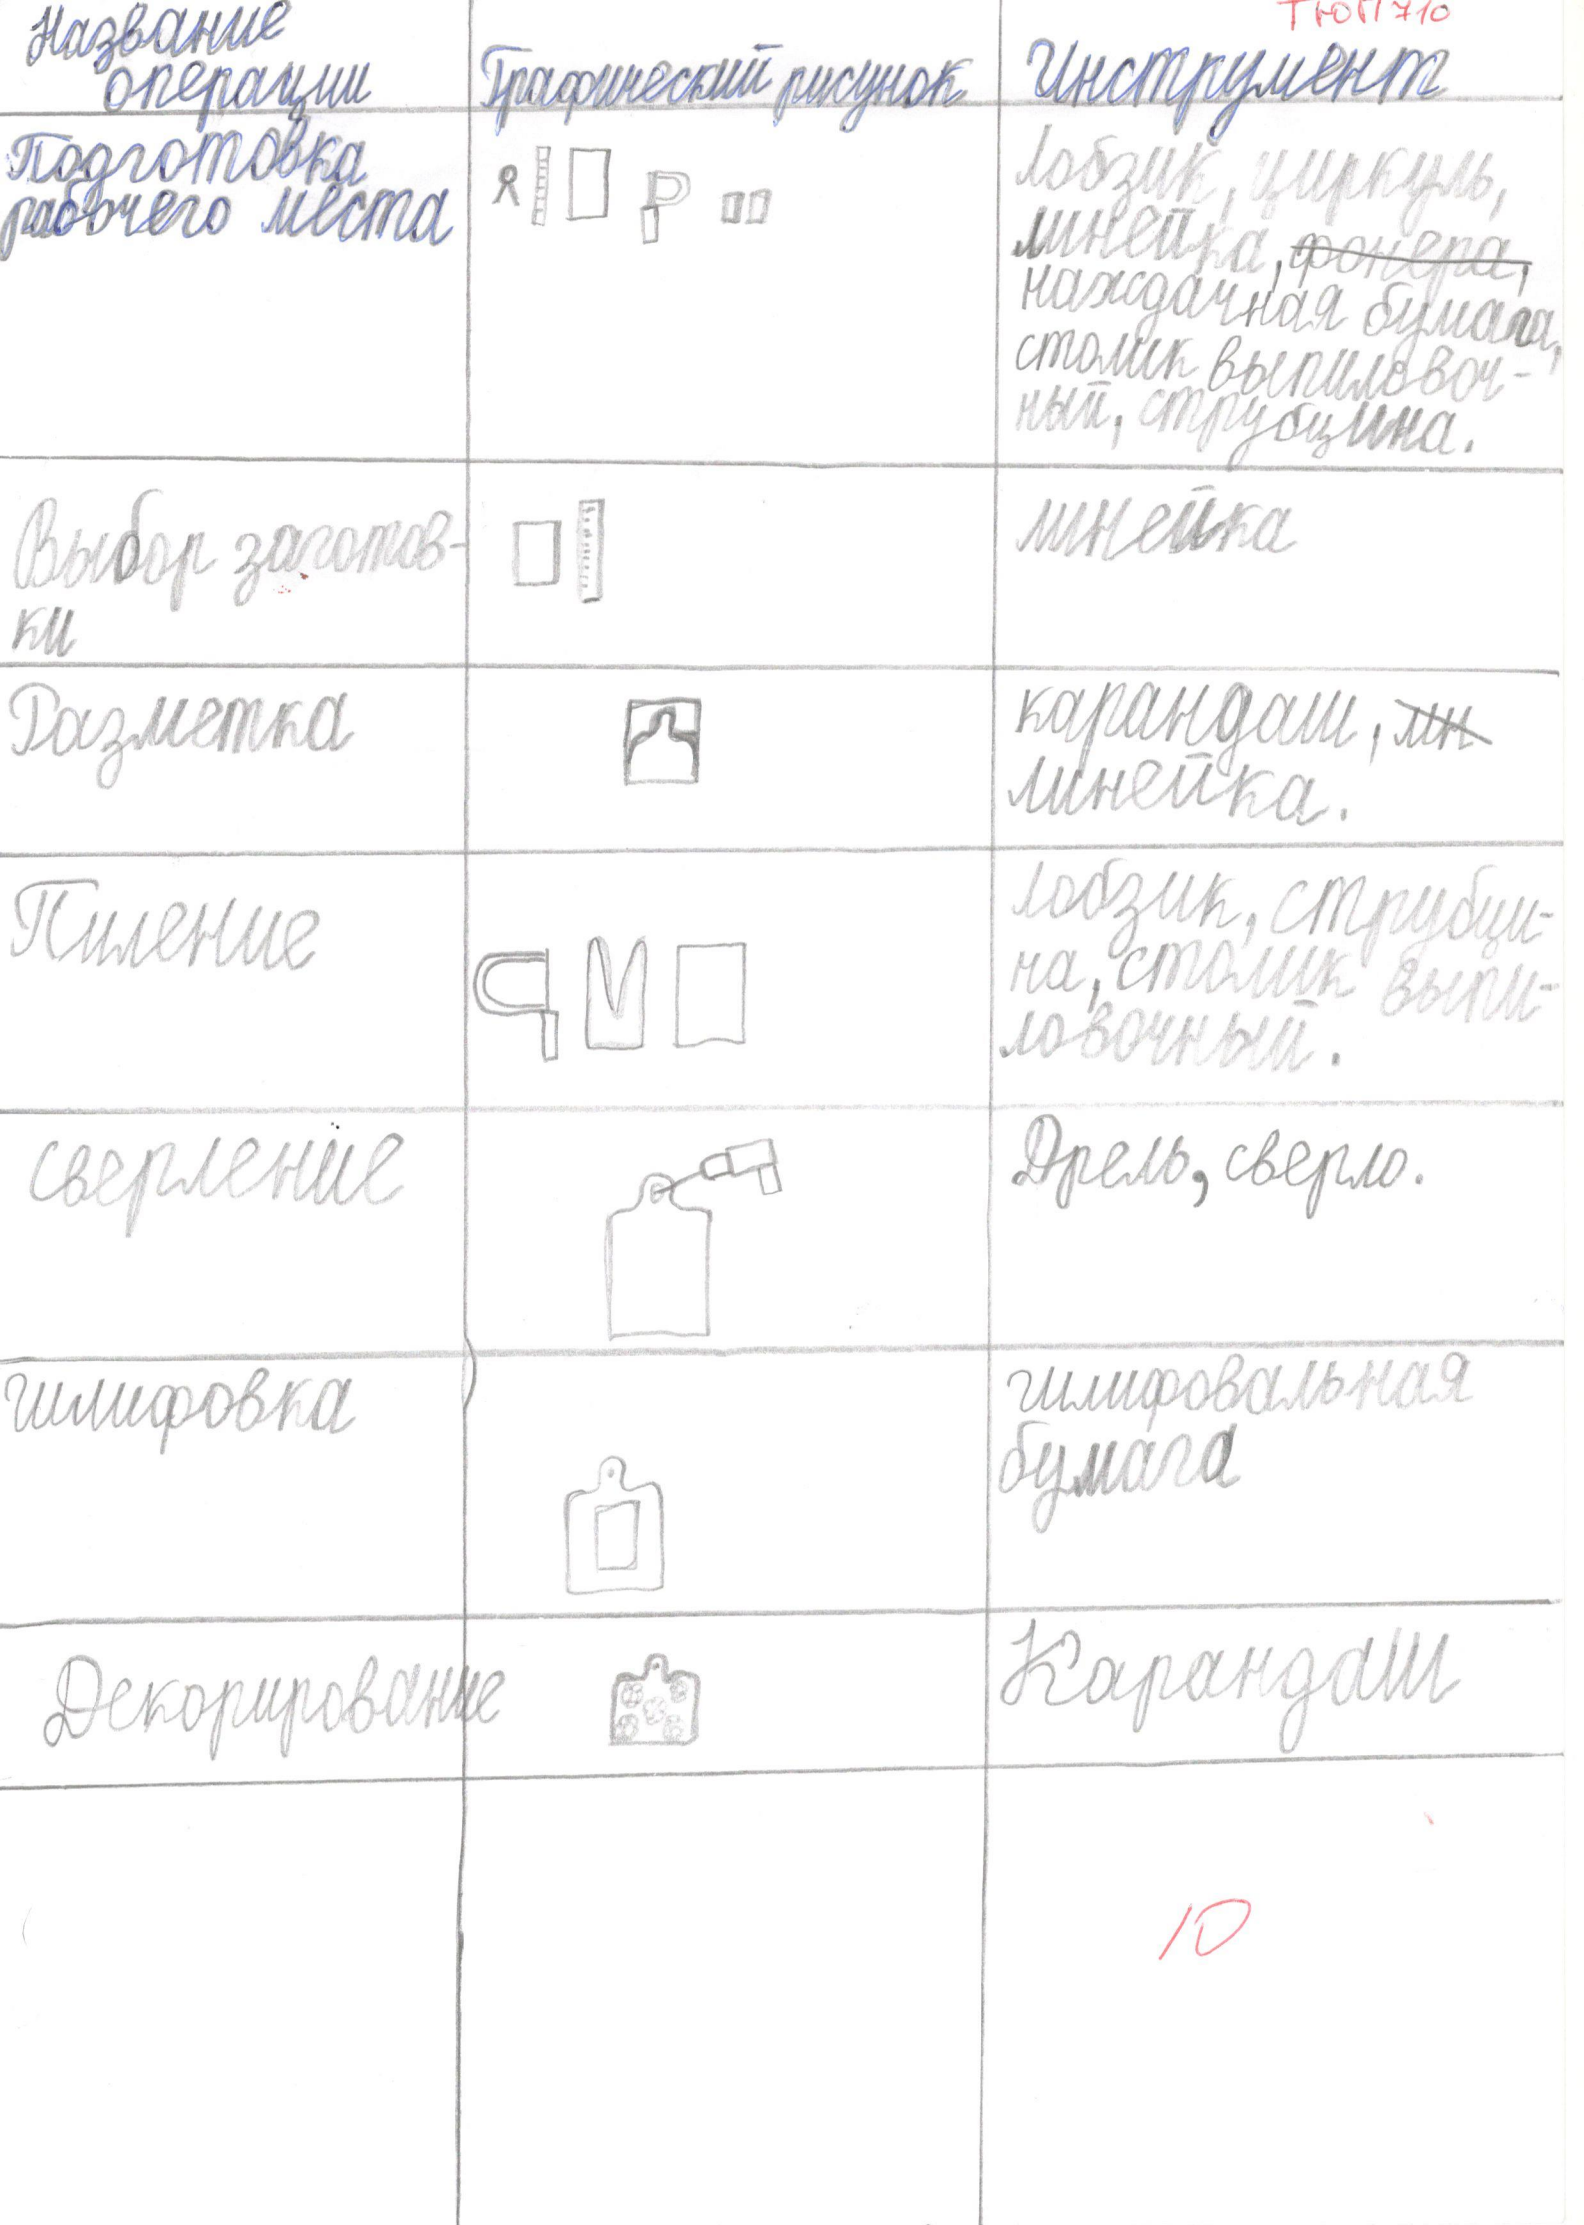 ТЮП710
Название
операции
Графический рисунок
Инструмент
Подготовка
рабочего места
Лобзик, циркуль,
линейка, фонера,
наждачная бумага,
столик выпиловоч-
ный, струбцина.
Выбор заготов-
ки
линейка
Разметка
карандаш, лн
линейка.
Пиление
Лобзик, струбци-
на, столик выпи-
ловочный.
сверление
Дрель, сверло.
шлифовка
шлифовальная
бумага
Декорирование
Карандаш
10